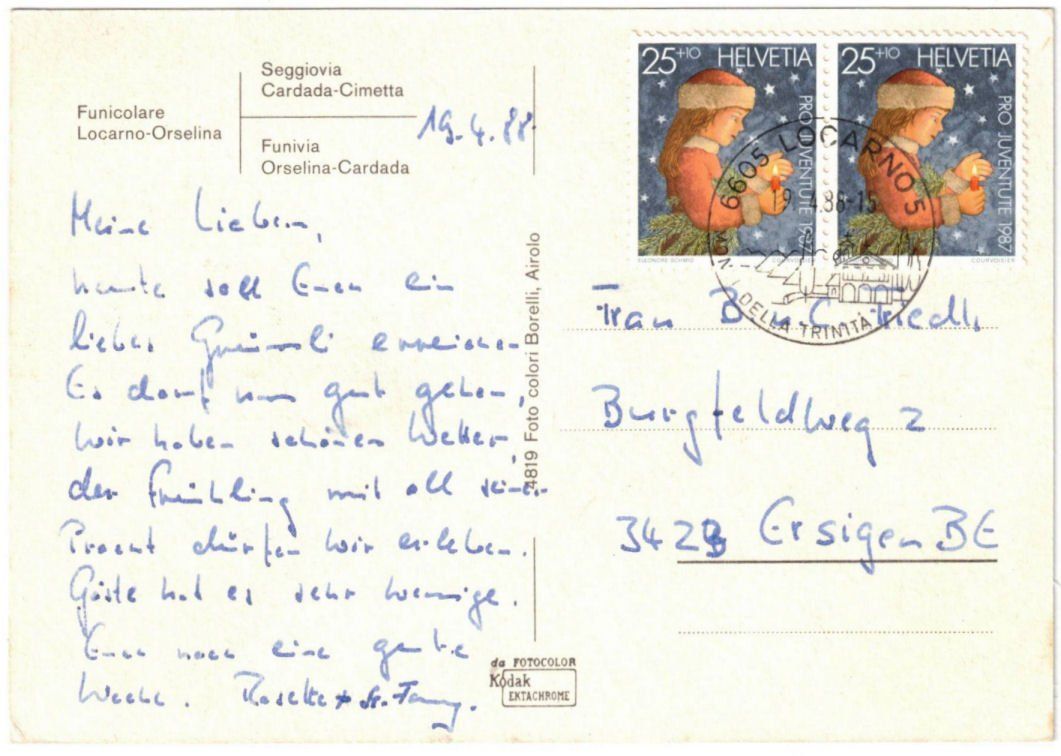 Funicolare
Locarno-Orselina
Seggiovia
Cardada-Cimetta
Funivia
Orselina-Cardada
19.4.88.
Meine Lieben,
heute soll Euch ein
liebes Grüessli erreichen
Es darf uns gut gehen,
wir haben schönes Wetter,
der Frühling mit all seiner
Pracht dürfen wir erleben.
Gäste hat es sehr wenige.
Euch noch eine gute
Woche. Rosette +
4819 Foto colori Borelli, Airolo
da FOTOCOLOR
Kodak
EKTACHROME
25+10 HELVETIA
PRO JUVENTUTE 1987
ELEONORE SCHMID
COURVOISIER
25+10 HELVETIA
PRO JUVENTUTE 1987
COURVOISIER
6605 LOCARNO 5
19.4.88-15
MON
DELLA TRINITÀ
Frau B. u. C. Friedli
Burgfeldweg 2
3423 Ersigen BE